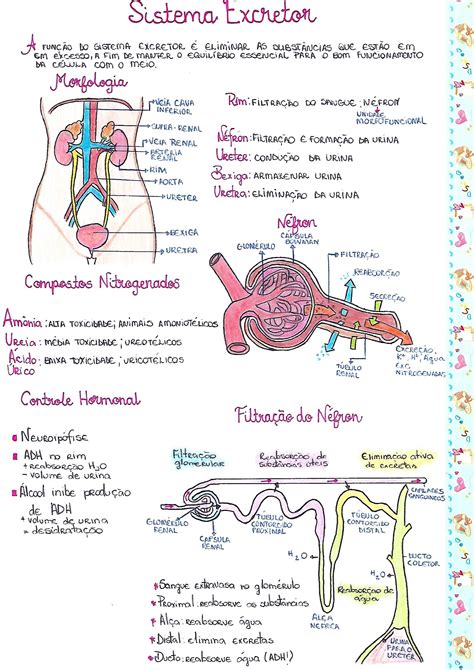 Sistema Excretor
A FUNÇÃO DO SISTEMA EXCRETOR É ELIMINAR AS SUBSTÂNCIAS QUE ESTÃO EM
EM EXCESSO, A FIM DE MANTER O EQUILÍBRIO ESSENCIAL PARA O BOM FUNCIONAMENTO
DA CÉLULA COM O MEIO.
Morfologia
VEIA CAVA
INFERIOR
SUPRA-RENAL
VEIA RENAL
ARTÉRIA
RENAL
RIM
AORTA
URETER
BEXIGA
URETRA
Rim: FILTRAÇÃO DO SANGUE; NÉFRON
UNIDADE
MORFOFUNCIONAL
Néfron: FILTRAÇÃO E FORMAÇÃO DA URINA
Ureter: CONDUÇÃO DA URINA
Bexiga: ARMAZENAR URINA
Uretra: ELIMINAÇÃO DA URINA
Néfron
CÁPSULA
BOWMAN
GLOMÉRULO
FILTRAÇÃO
REABSORÇÃO
SECREÇÃO
EXCREÇÃO
K⁺, H⁺, Água
EXC.
NITROGENADAS
TÚBULO
RENAL
Compostos Nitrogenados
Amônia: ALTA TOXICIDADE; ANIMAIS AMONIOTÉLICOS
Ureia: MÉDIA TOXICIDADE; UREOTÉLICOS
Ácido: BAIXA TOXICIDADE; URICOTÉLICOS
Úrico
Controle Hormonal
Neuroipófise
ADH no rim
+ reabsorção H₂O
- volume de urina
Álcool inibe produção
de ADH
+ volume de urina
= desidratação
Filtração do Néfron
Filtração
glomerular
Reabsorção de
substâncias úteis
Eliminação ativa
de excretas
CAPILARES
SANGUÍNEOS
GLOMÉRULO
RENAL
CÁPSULA
RENAL
TÚBULO
CONTORCIDO
PROXIMAL
TÚBULO
CONTORCIDO
DISTAL
H₂O
H₂O
DUCTO
COLETOR
Reabsorção de
água
ALÇA
NÉFRICA
URINA
PARA O
URETER
* Sangue extravasa no glomérulo
* Proximal: reabsorve as substâncias
* Alça: reabsorve água
* Distal: elimina excretas
* Ducto: reabsorve água (ADH!)